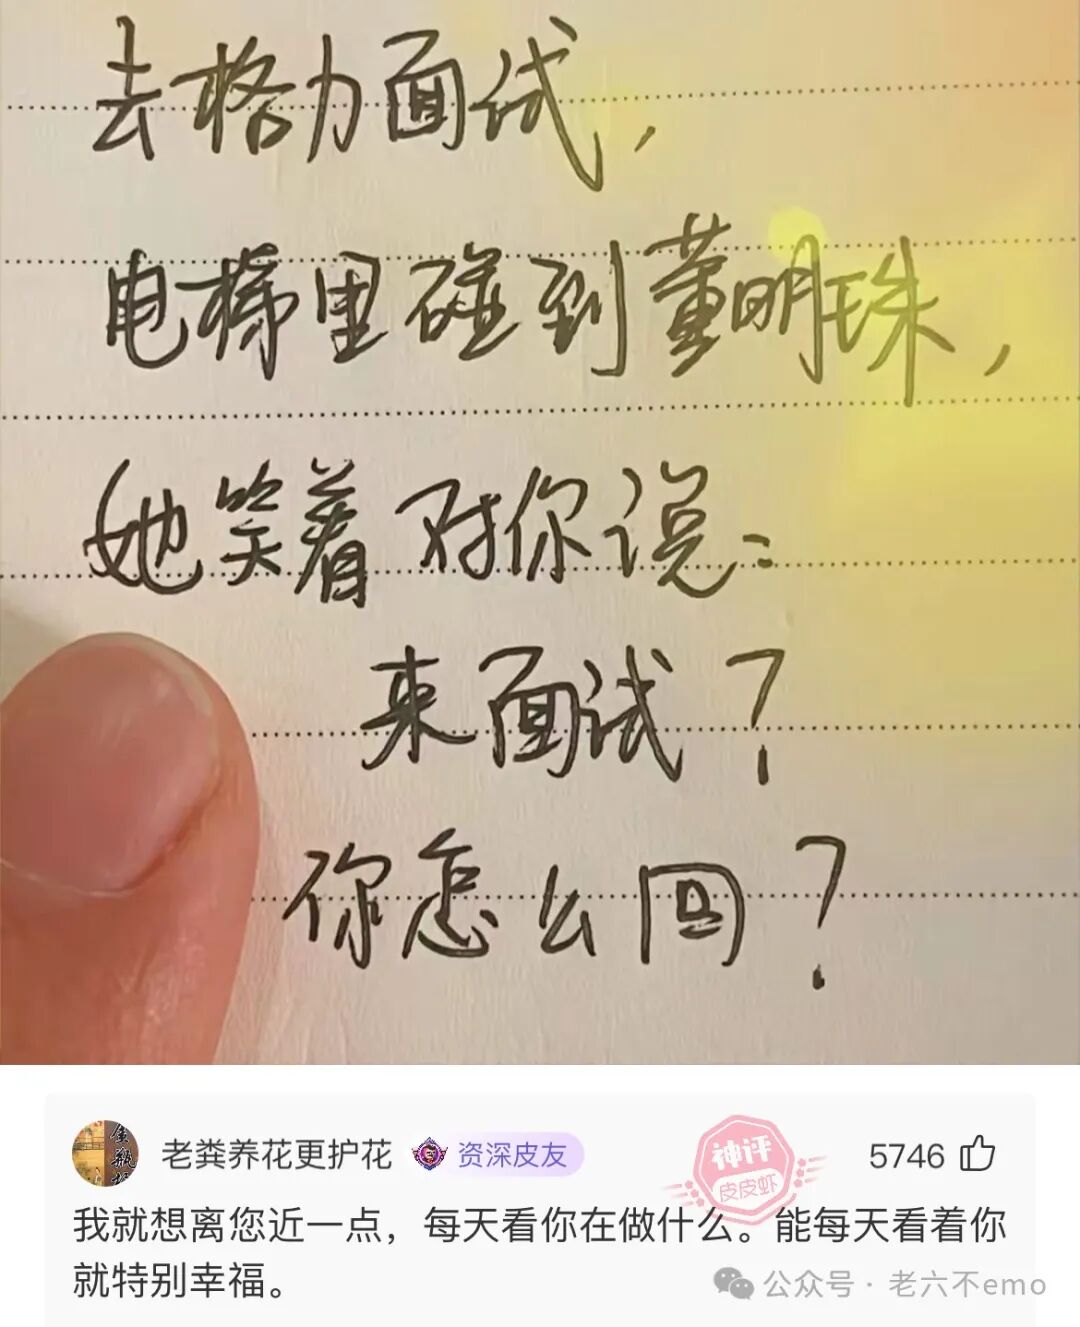 去格力面试，
电梯里碰到董明珠，
她笑着对你说：
来面试？
你怎么回？
老粪养花更护花 资深皮友 神评 皮皮虾 5746
我就想离您近一点，每天看你在做什么。能每天看着你
就特别幸福。
公众号·老六不emo